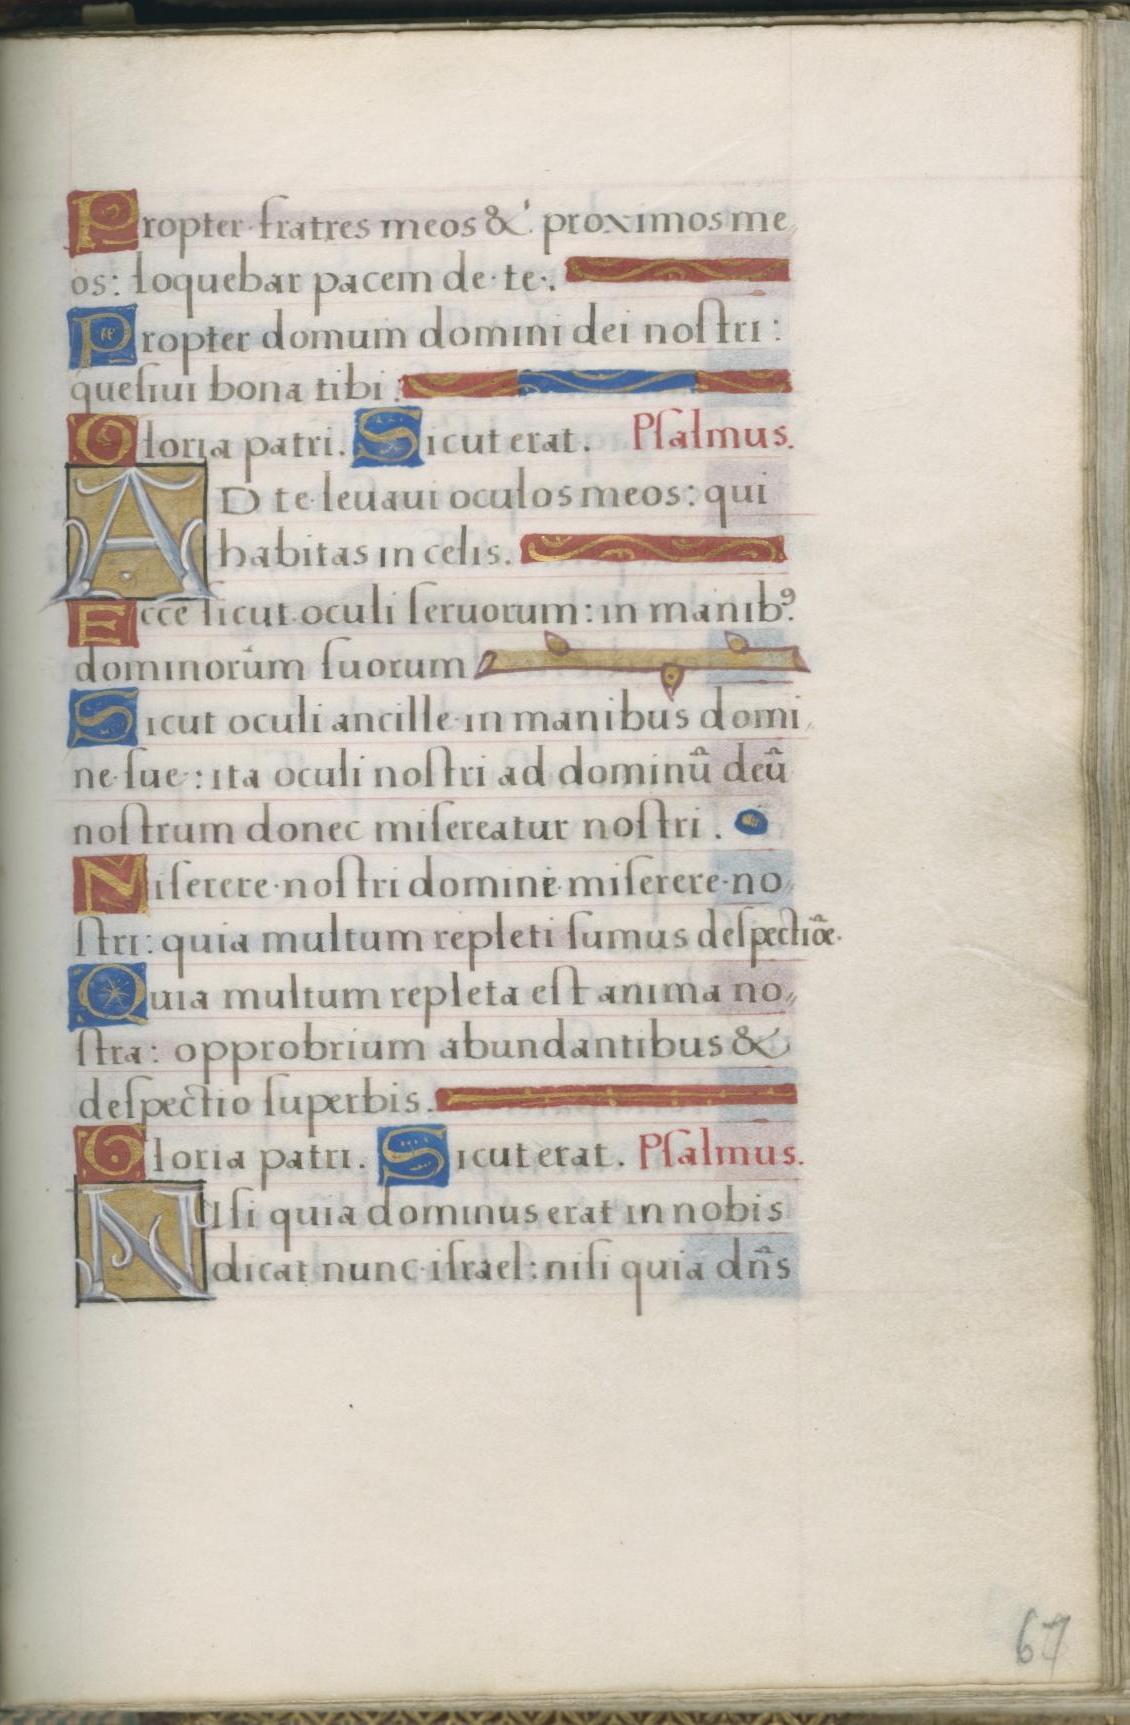 Propter fratres meos & proximos me„
os: loquebar pacem de te.
Propter domum domini dei noſtri:
queſiui bona tibi.
Gloria patri. Sicut erat. Pſalmus.
AD te leuaui oculos meos: qui
habitas in celis.
Ecce ſicut oculi ſeruorum: in manibꝰ.
dominorum ſuorum
Sicut oculi ancille in manibus domi„
ne ſue: ita oculi noſtri ad dominū deū
noſtrum donec miſereatur noſtri.
Miſerere noſtri domine miſerere no„
ſtri: quia multum repleti ſumus deſpectiōe.
Quia multum repleta eſt anima no„
ſtra: opprobrium abundantibus &
deſpectio ſuperbis.
Gloria patri. Sicut erat. Pſalmus.
NIſi quia dominus erat in nobis
dicat nunc iſrael: niſi quia dn̄s
67